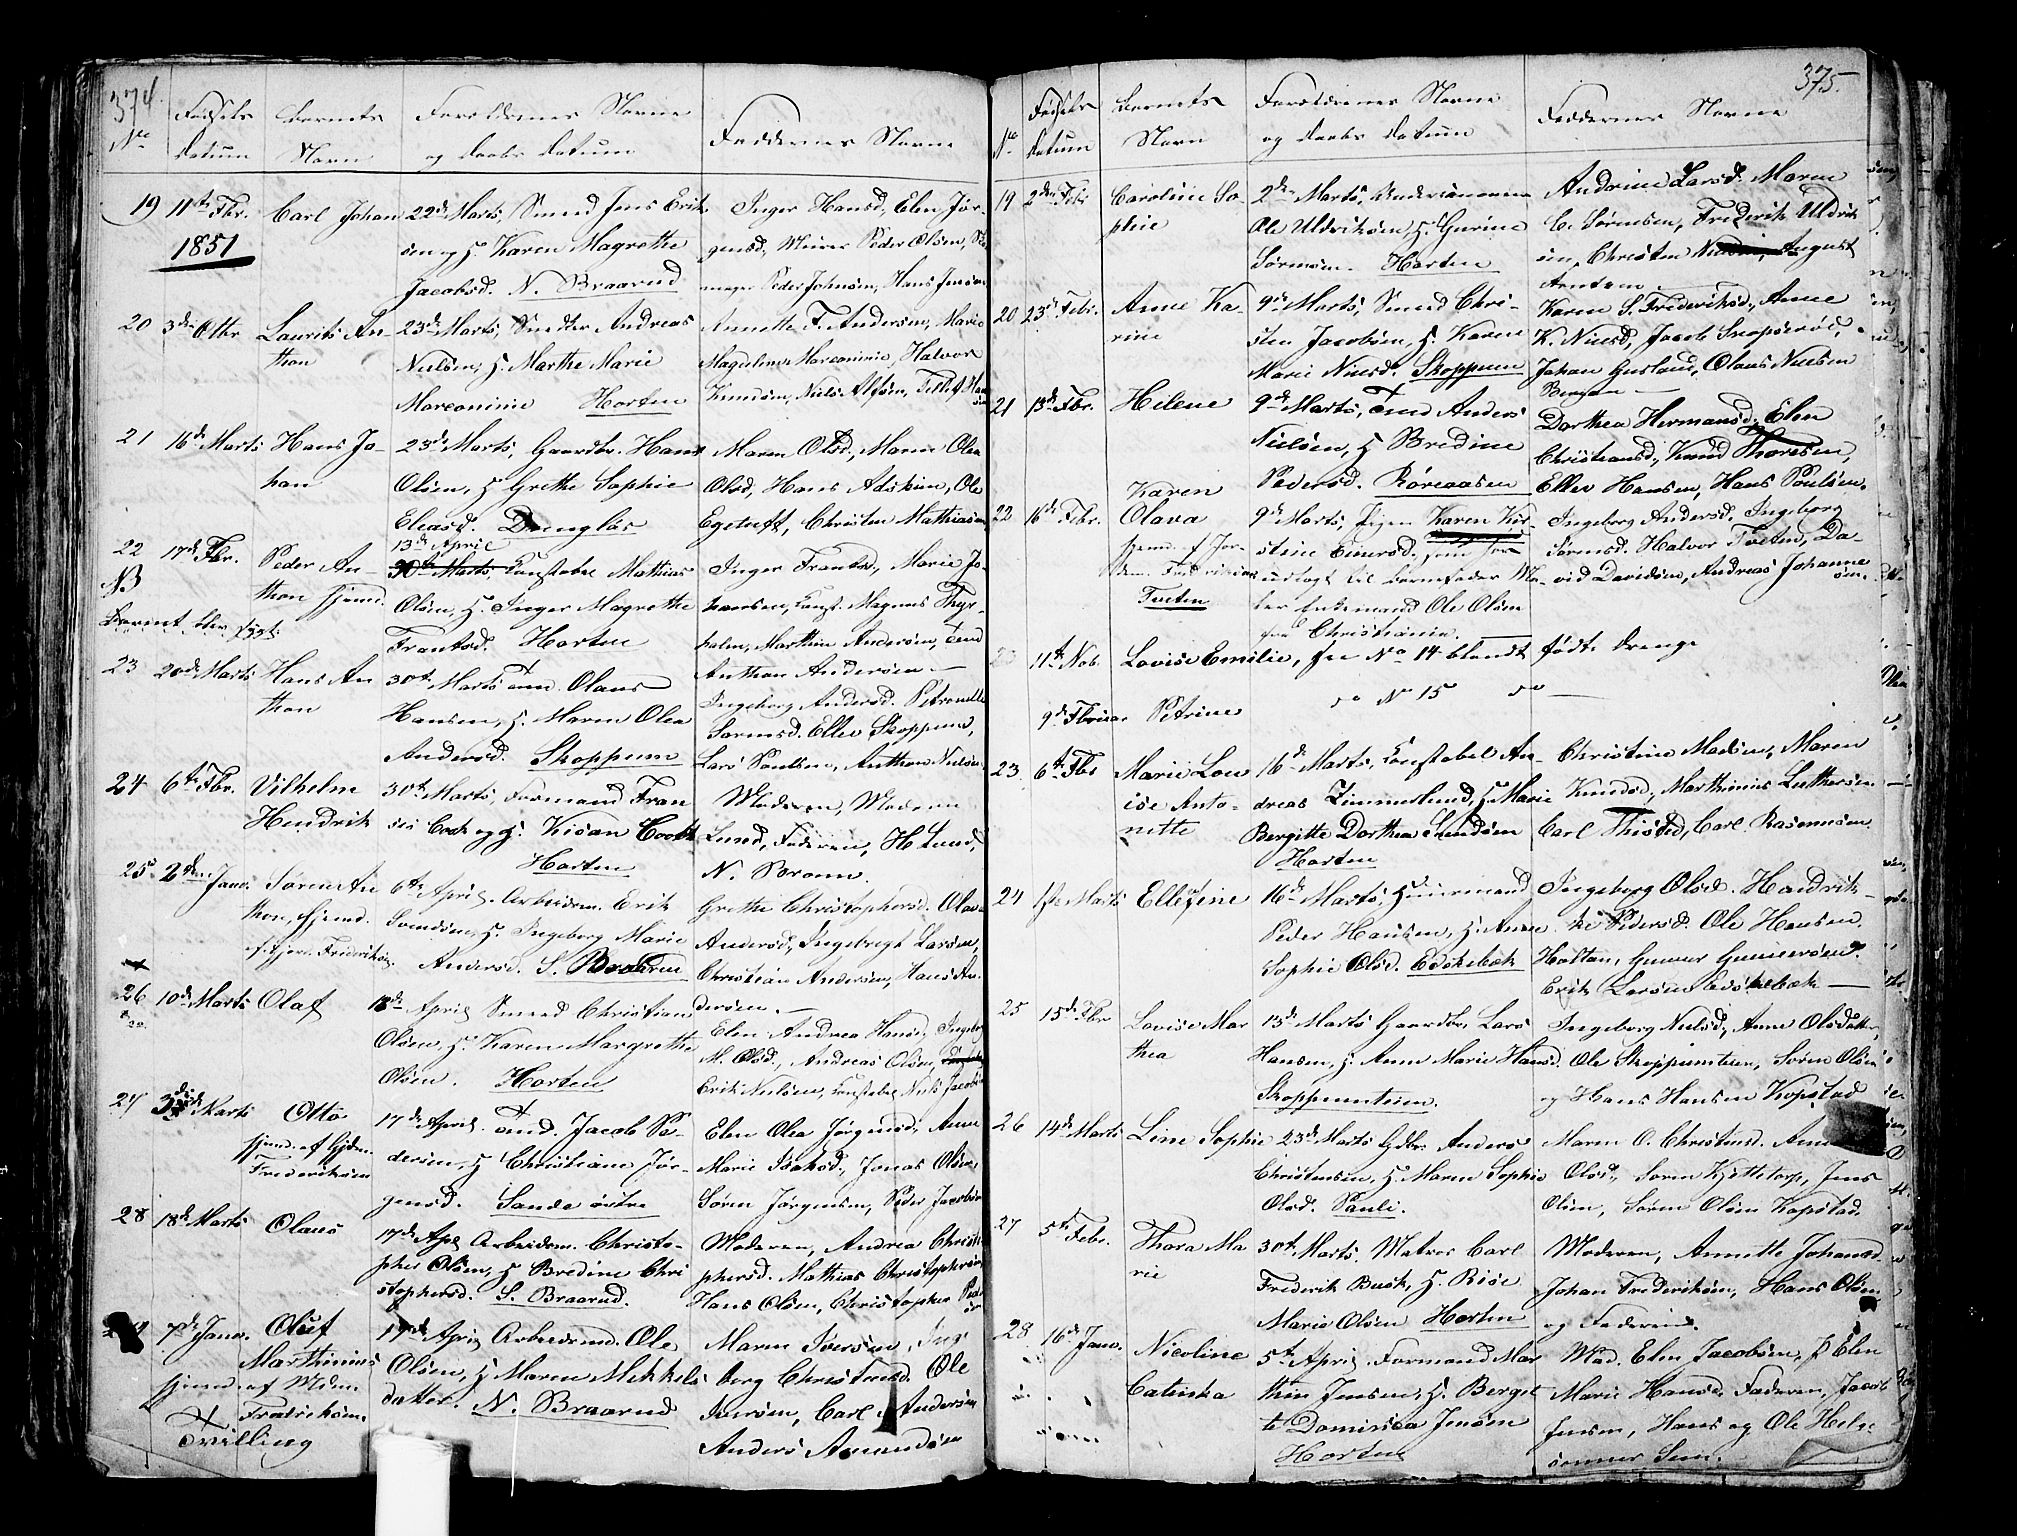 374
No
Fødsels
datum
Barnets
Navn
Foreldrenes Navne
og Daabs Datum
Faddernes Navne
19
11te Fbr.
1851
Carl Johan
22de Marts, Smed Jens Erik
sen og H. Karen Magrethe
Jacobsd. N. Braarud
Inger Hansd, Elen Jør-
gensd, Murer Peder Olsen,
Peder Johnsen, Hans Jensen
20
3die Otbr
Laurits An-
thon
23de Marts, Andreas
Nielsen, H. Marthe Marie
Marconinie Horten
Annette F. Andersen, Marie
Magdelene Marconinie, Halvor
Knudsen, Niels Alfsen,
21
16de Marts
Hans Jo-
han
23de Marts, Gaardbr. Hans
Olsen, H. Grethe Sophie
Eleasd.
Maren Olsd, Maren Olea
Olsd, Hans Adskim, Ole
Egetuft, Christen Mathiasen
22
NB
17de Fbr.
Barnet blev
Peder An-
thon hjemd.
13de April
30te Marts, Konstabel Mathias
Olsen, H. Inger Magrethe
Frantsd. Horten
Inger Frantsd, Marie Jo-
hansen, Konst. Magnus Thys-
holm, Marthin Andersen,
Anthon Andersen
23
20de Marts
Hans An
thon
30te Marts Olaus
Hansen, H. Maren Olea
Andersd. Skoppum
Ingeborg Andersd. Petronelle
Sørensd. Ellev Skoppum,
Lars Poulsen, Anthon Nielsen
24
6te Fbr.
Vilhelm
Hendrik
30te Marts, Formand Fran
sis Cook og H. Kisan Cook
Horten
Moderen, Madam
Lund, Faderen, H. Lund,
N. Bromn.
25
2den Janv.
Søren An
thon, hjemd.
af Frederiksen
6te April Arbeidsm. Erik
Svendsen, H. Ingeborg Marie
Andersd. S. Braarud
Grethe Christophersd. Olava
Andersd, Ingebregt Larsen,
Christian Andersen, Hans An-
dersen.
26
10de Marts
Olaf
18de April Smed Christian
Olsen, H. Karen Margrethe
Olsen. Horten
Elen Andrea Hansd, Ingeborg
M. Olsd., Andreas Olsen,
Erik Nielsen, Konstabel Niels Jacobsen
27
3die Marts
Otto
hjemd. af
Frederiksen
17de April Jacob Pe-
dersen, H Christiane Jør-
gensd. Sande østre
Elen Olea Jørgensd, Anne
Marie Isaksd, Jonas Olsen,
Søren Jørgensen, Peder Jacobsen
28
18de Marts
Olaus
17de Apl Arbeidsm. Christo-
pher Olsen, H Bredine Chri
stophersd. S. Braarud.
Moderen, Andrea Christo
phersd. Mathias Christophersen
Hans Olsen, Christopher
7de Janv.
Oluf
Marthinius
hjemd. af
Fredriksen.
Tvilling
17de April Arbeidsmd. Ole
Olsen, H Maren Mikkels
datter. N. Braarud
Maren Iversen, Inge
borg Christensd. Ole
Iversen, Carl Andersen
Anders Amundsen
375.
No
Fødsels
Datum
Barnets
Navn
Foreldrenes Navne
og Daabs Datum
Faddernes Navne
19
2den Febr
Caroline So-
phie
2den Marts,
Ole Uldriksen, H. Gurine
Sørensen. Horten
Andrine Larsd. Maren
C. Sørensen, Frederik Uldrik
sen, Christen August
Arntsen
20
23de Febr.
Anne Ka-
rine
9de Marts, Smed Chri-
sten Jacobsen, H. Karen
Marie Nielsd. Skoppum
Karen S. Frederiksd, Anne
K. Nielsd, Jacob Snopserød,
Johan Gusland, Olaus Nielsen
Borgen
21
13de Fbr.
Helene
9de Marts, Anders
Nielsen, H Bredine
Pedersd. Røreaasen
Dorthea Hermansd, Elen
Christiansd, Knud Thoresen,
Ellev Hansen, Hans Poulsen.
22
16de Febr.
Karen
Olava
hjemd. af Jor-
dem. Fredriksen
Tveten
9de Marts, Pigen Karen Kir-
stine Einersd, som har
udlagt til Barnefader Ma-
ler Enkemand Ole Olsen
fra Christiania.
Ingeborg Andersd. Ingeborg
Sørensd. Halvor Tveten, Da-
vid Davidsen, Andreas Johanne
sen.
11te Nob.
Lovise Emilie, see No 14 blandt fødte Drenge
9de Februar
Petrine
do No 15 do
23
6te Fbr
Marie Lou
ise Anto-
nette
16de Marts, Konstabel An-
dreas Zimmerlund, H. Marie
Bergitte Dorthea Lundsen
Horten
Christine Madsen, Maren
Knudsd, Marthinius Luthersen
Carl Thisted, Carl Rasmussen
24
1ste Marts
Ellefine
16de Marts, Huusmand
Peder Hansen, H. Anne
Sophie Olsd. Edskebek
Ingeborg Olsd. Hendrik-
ke Pedersd. Ole Hansen
Holtan, Gunner Gunnersen og
Erik Larsen Edskebæk
25
15de Fbr
Lovise Mar
thea
23de Marts Gaardbr. Lars
Hansen, H. Anne Marie Hansd.
Skoppumteien.
Ingeborg Nielsd, Anne Olsdatter,
Ole Skoppumteien, Søren Olsen
og Hans Hansen Kopstad
26
14de Marts
Line Sophie
23de Marts Gdbr. Anders
Christensen, H. Maren Sophie
Olsd. Pauli.
Maren O. Christensd. Anne
Olsd, Søren Kjettetorp, Jens
Olsen, Søren Olsen Kopstad.
27
5te Febr.
Thora Ma
rie
30te Marts, Matros Carl
Frederik Busk, H. Risé
Marie Olsen Horten
Moderen, Annette Johansd
Johan Frederiksen, Hans Olsen
og Faderen.
28
16de Janv.
Nicoline
Catinka
5te April Formand Mar
thin Jensen, H. Berget
te Jensen
Horten
Mad. Elen Jacobsen, P Elen
Marie Hansd. Faderen, Jacob
Jensen, Hans og Ole Hels-
sønner Sem.